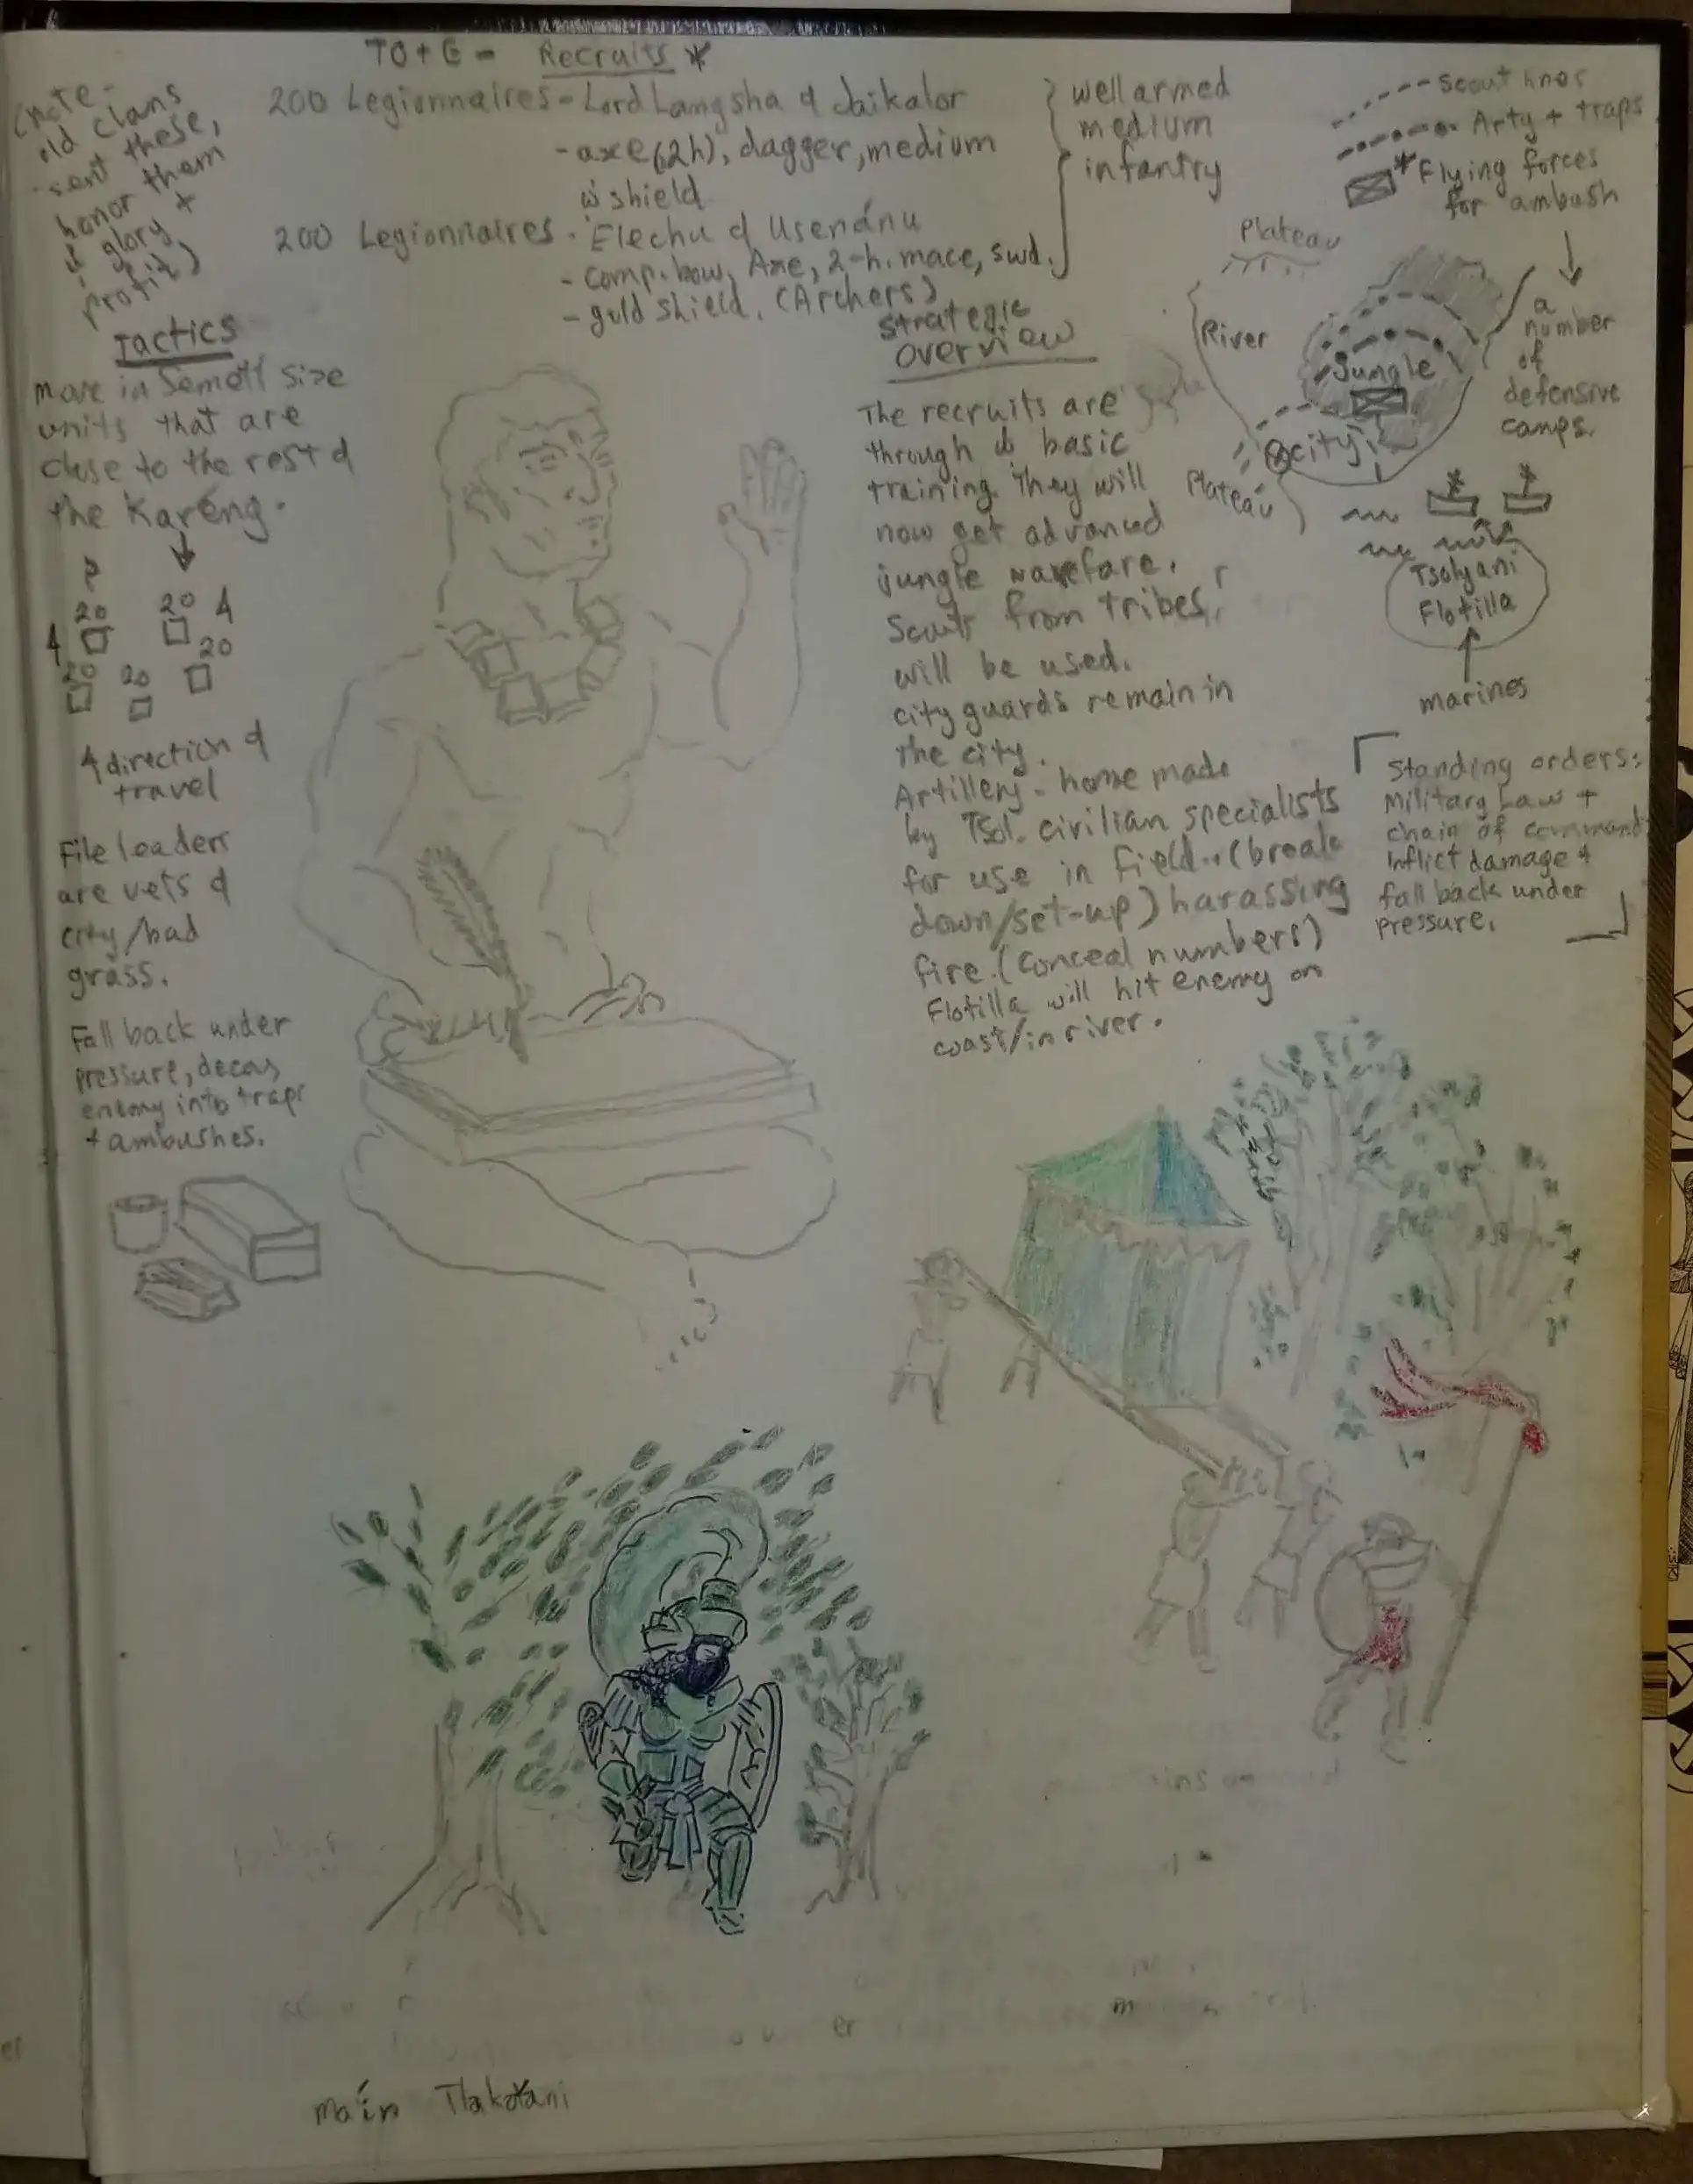 TO + E - Recruits *
(note -
old clans
sent these,
honor them
glory +
profit)
200 Legionnaires - Lord Langsha & Jaikalor
- axe (2h), dagger, medium
shield
200 Legionnaires - Elechu & Usenánu
- comp. bow, Axe, 2-h. mace, swd.
- guld shield. (Archers)
well armed
medium
infantry
Tactics
move in Semetl size
units that are
close to the rest
the Karéng.
?
20
20
4
4
20
20
20
direction
travel
File leaders
are vets
city/bad
grass.
Fall back under
pressure, decoy
enemy into traps
+ ambushes.
strategic
overview
The recruits are
through basic
training. They will
now get advanced
jungle warefare.
Scouts from tribes,
will be used.
city guards remain in
the city.
Artillery - home made
by Tsol. civilian specialists
for use in field.. (break
down/set-up) harassing
fire. (conceal numbers)
Flotilla will hit enemy on
coast/in river.
scout lines
Arty + traps
* Flying forces
for ambush
a
number
of
defensive
camps.
Plateau
River
Jungle
city
Plateau
Tsolyani
Flotilla
marines
Standing orders:
Military Law +
chain of command
Inflict damage +
fall back under
pressure.
Ma'in Tlakotani